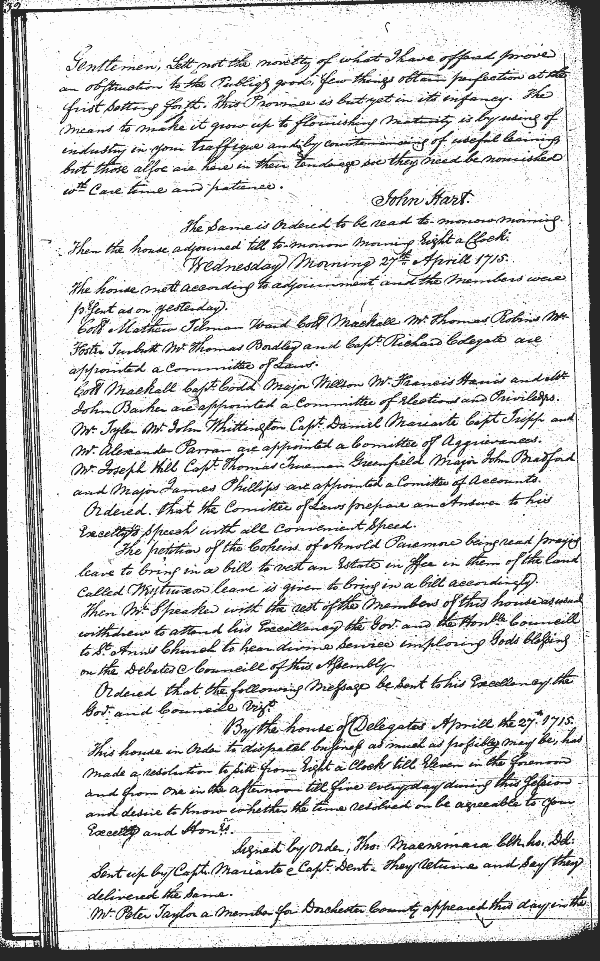 Gentlemen, Lett not the novelty of what I have offered prove
an obstruction to the Publiq good, few things obtain perfection at the
first setting forth. this Province is but yet in its infancy. The
means to make it grow up to flourishing maturity is by using of
industry in your traffique and by countenancing of useful learning
but those alsoe are here in their tendrage soe they need be nourished
wth Care time and patience.
John Hart.
The Same is Ordered to be read to-morrow morning.
Then the house adjourned till to-morrow morning Eight a Clock.
Wednesday Morning 27th Aprill 1715.
The house mett according to adjournment and the Members were
p'sent as on yesterday.
Coll Mathew Tilman Ward Coll Mackall Mr Thomas Robins Mr
Foster Turbutt Mr Thomas Bordley and Capt Richard Colegate are
appointed a Committee of Laws.
Coll Mackall Capt Codd Major Willson Mr Francis Harris and Mr
John Barker are appointed a Committee of Elections and Priviledges.
Mr Tyler Mr John Whittington Capt Daniel Mariarte Capt Tripp and
Mr Alexander Parran are appointed a Committee of Aggrievances.
Mr Joseph Hill Capt Thomas Trueman Greenfield Major John Bradford
and Major James Phillips are appointed a Comittee of Accounts.
Ordered, that the Comittee of Laws prepare an Answer to his
Excellys Speech with all Convenient Speed.
The petition of the Coheirs of Arnold Paremore being read praying
leave to bring in a bill to vest an Estate in ffee in them of the land
Called leave is given to bring in a bill accordingly.
Then Mr Speaker with the rest of the Members of this house
withdrew to attend his Excellency the Gov. and the Honble Councill
to St Anns Church to hear divine Service imploring Gods blessing
on the Debates & Councill of this Assembly
Ordered that the following Message be Sent to his Excellency the
Gov. and Councill Vizt
By the house of Delegates Aprill the 27th 1715.
This house in Order to dispatch business as much as possibly may be, has
made a resolution to sitt from Eight a Clock till Eleven in the forenoon
and from one in the afternoon till five every day during this Session
and desire to Know whether the time resolved on be agreeable to your
Excelly and Honrs.
Signed by Order, Tho: Macnemara Clk. ho. Del:
Sent up by Capt. Mariarte & Capt. Dent. They returne and Say they
delivered the Same.
Mr Peter Taylor a Member for Dorchester County appeared this day in the